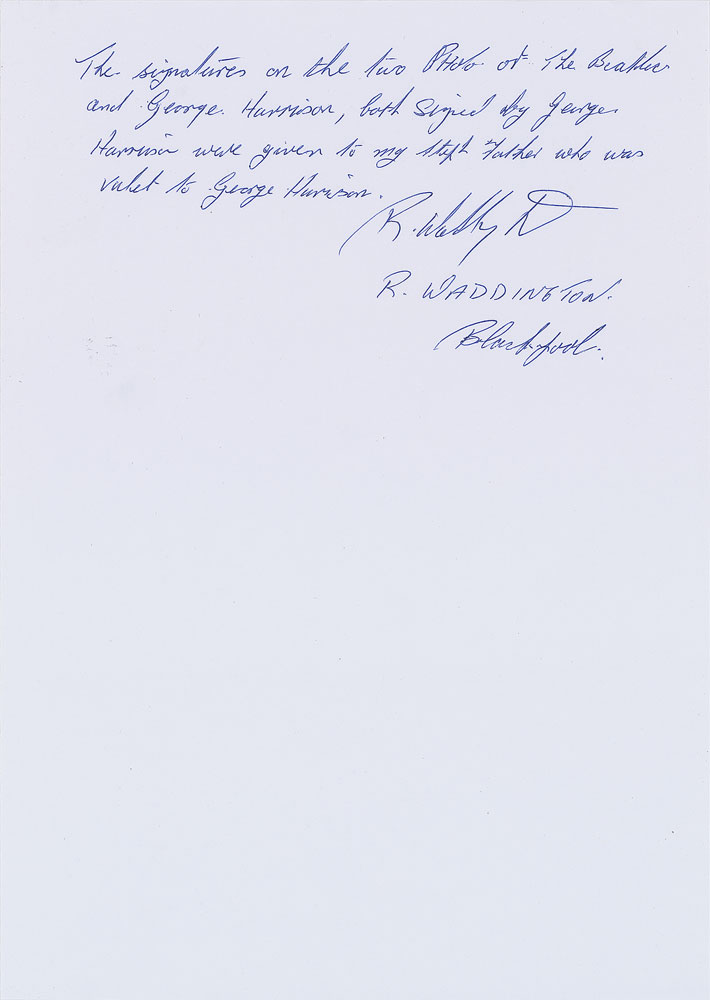 The signatures on the two Photo of The Beatles
and George Harrison, both signed by George
Harrison were given to my step Father who was
valet to George Harrison.
R. WADDINGTON.
Blackpool.